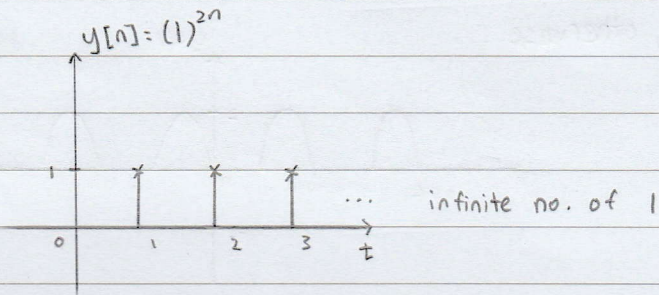 y[n] = (1)^2n
1
... infinite no. of 1
0 1 2 3 t